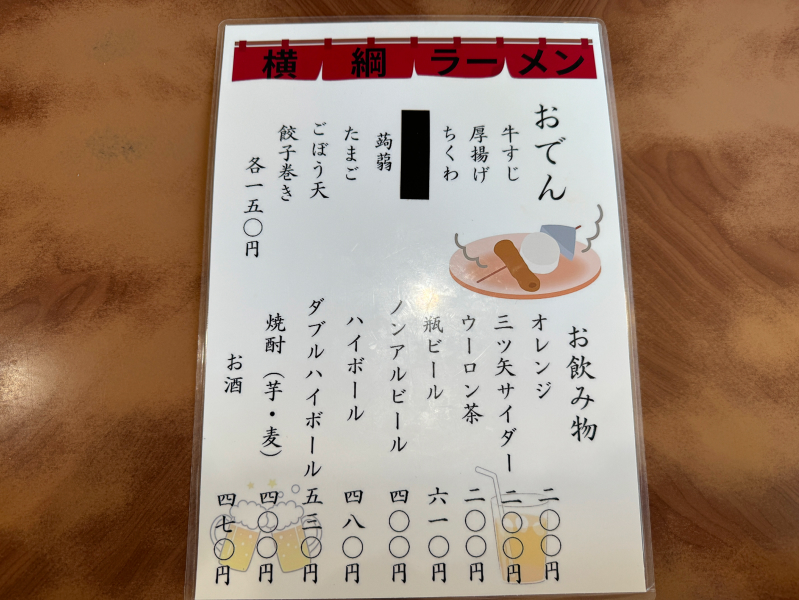 横綱ラーメン
おでん
牛すじ
厚揚げ
ちくわ
蒟蒻
たまご
ごぼう天
餃子巻き
各一五〇円
お飲み物
オレンジ 二〇〇円
三ツ矢サイダー 二〇〇円
ウーロン茶 二〇〇円
瓶ビール 六一〇円
ノンアルビール 四〇〇円
ハイボール 四八〇円
ダブルハイボール 五三〇円
焼酎（芋・麦） 四〇〇円
お酒 四七〇円